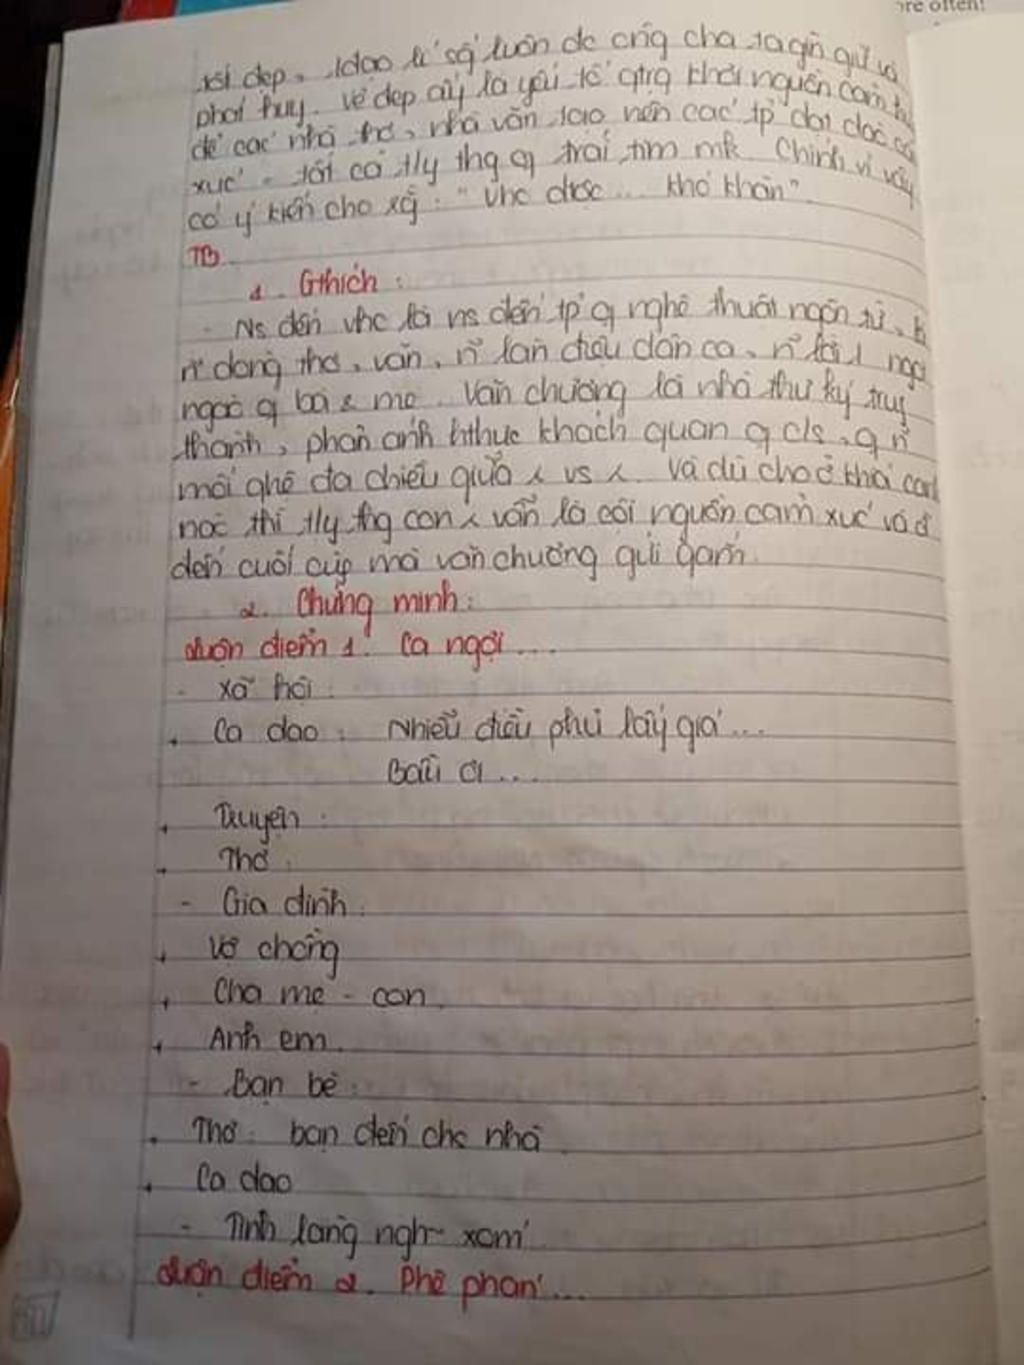 ore often!
tốt đẹp, đạo lí sống luôn đc ông cha ta gìn giữ và
phát huy. Vẻ đẹp ấy là yếu tố qtrg khơi nguồn cảm
để các nhà thơ, nhà văn tạo nên các tp dạt dào cảm
xúc - tất cả tly thg q trái tim mk. Chính vì vậy
có ý kiến cho rằng: "Vhc đxc ... khó khăn"
TB
1. Gthích:
- Ns đến vhc là ns đến tp q nghệ thuật ngôn từ, là
n~ dòng thơ, văn, n~ làn điệu dân ca, n~ lời ngọt
ngào q bà & mẹ. Văn chương là nhà thư ký trung
thành, phản ánh hthực khách quan q c/s, q n~
mối qhệ đa chiều giữa λ vs λ. Và dù cho ở khía cạnh
nào thì tly thg con λ vẫn là cội nguồn cảm xúc và đ
đến cuối cùg mà văn chương gửi gắm.
2. Chứng minh:
Luận điểm 1: Ca ngợi ...
- Xã hội:
+ Ca dao: Nhiễu điều phủ lấy giá ...
Bầu ơi ...
+ Truyện:
+ Thơ:
- Gia đình:
+ Vợ chồng
+ Cha mẹ - con.
+ Anh em.
- Bạn bè:
+ Thơ: bạn đến chơi nhà
+ Ca dao
- Tình làng ngh~ xóm
Luận điểm 2. Phê phán ...